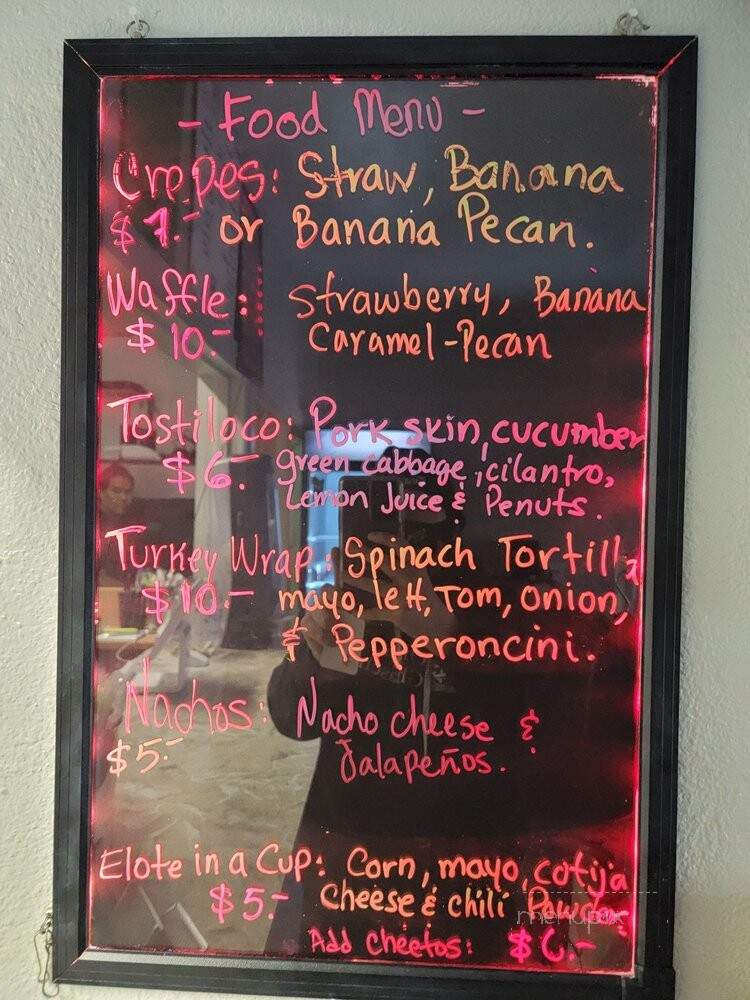 - Food Menu -
Crepes: Straw, Banana
$7.- or Banana Pecan.
Waffle: Strawberry, Banana
$10.- Caramel-Pecan
Tostiloco: Pork skin, cucumber
$6.- green cabbage, cilantro,
Lemon Juice & Penuts.
Turkey Wrap: Spinach Tortilla
$10.- mayo, lett, Tom, Onion,
& Pepperoncini.
Nachos: Nacho cheese &
$5.- Jalapeños.
Elote in a Cup: Corn, mayo, cotija
$5.- Cheese & chili Powder
Add Cheetos: $6.-
menupix